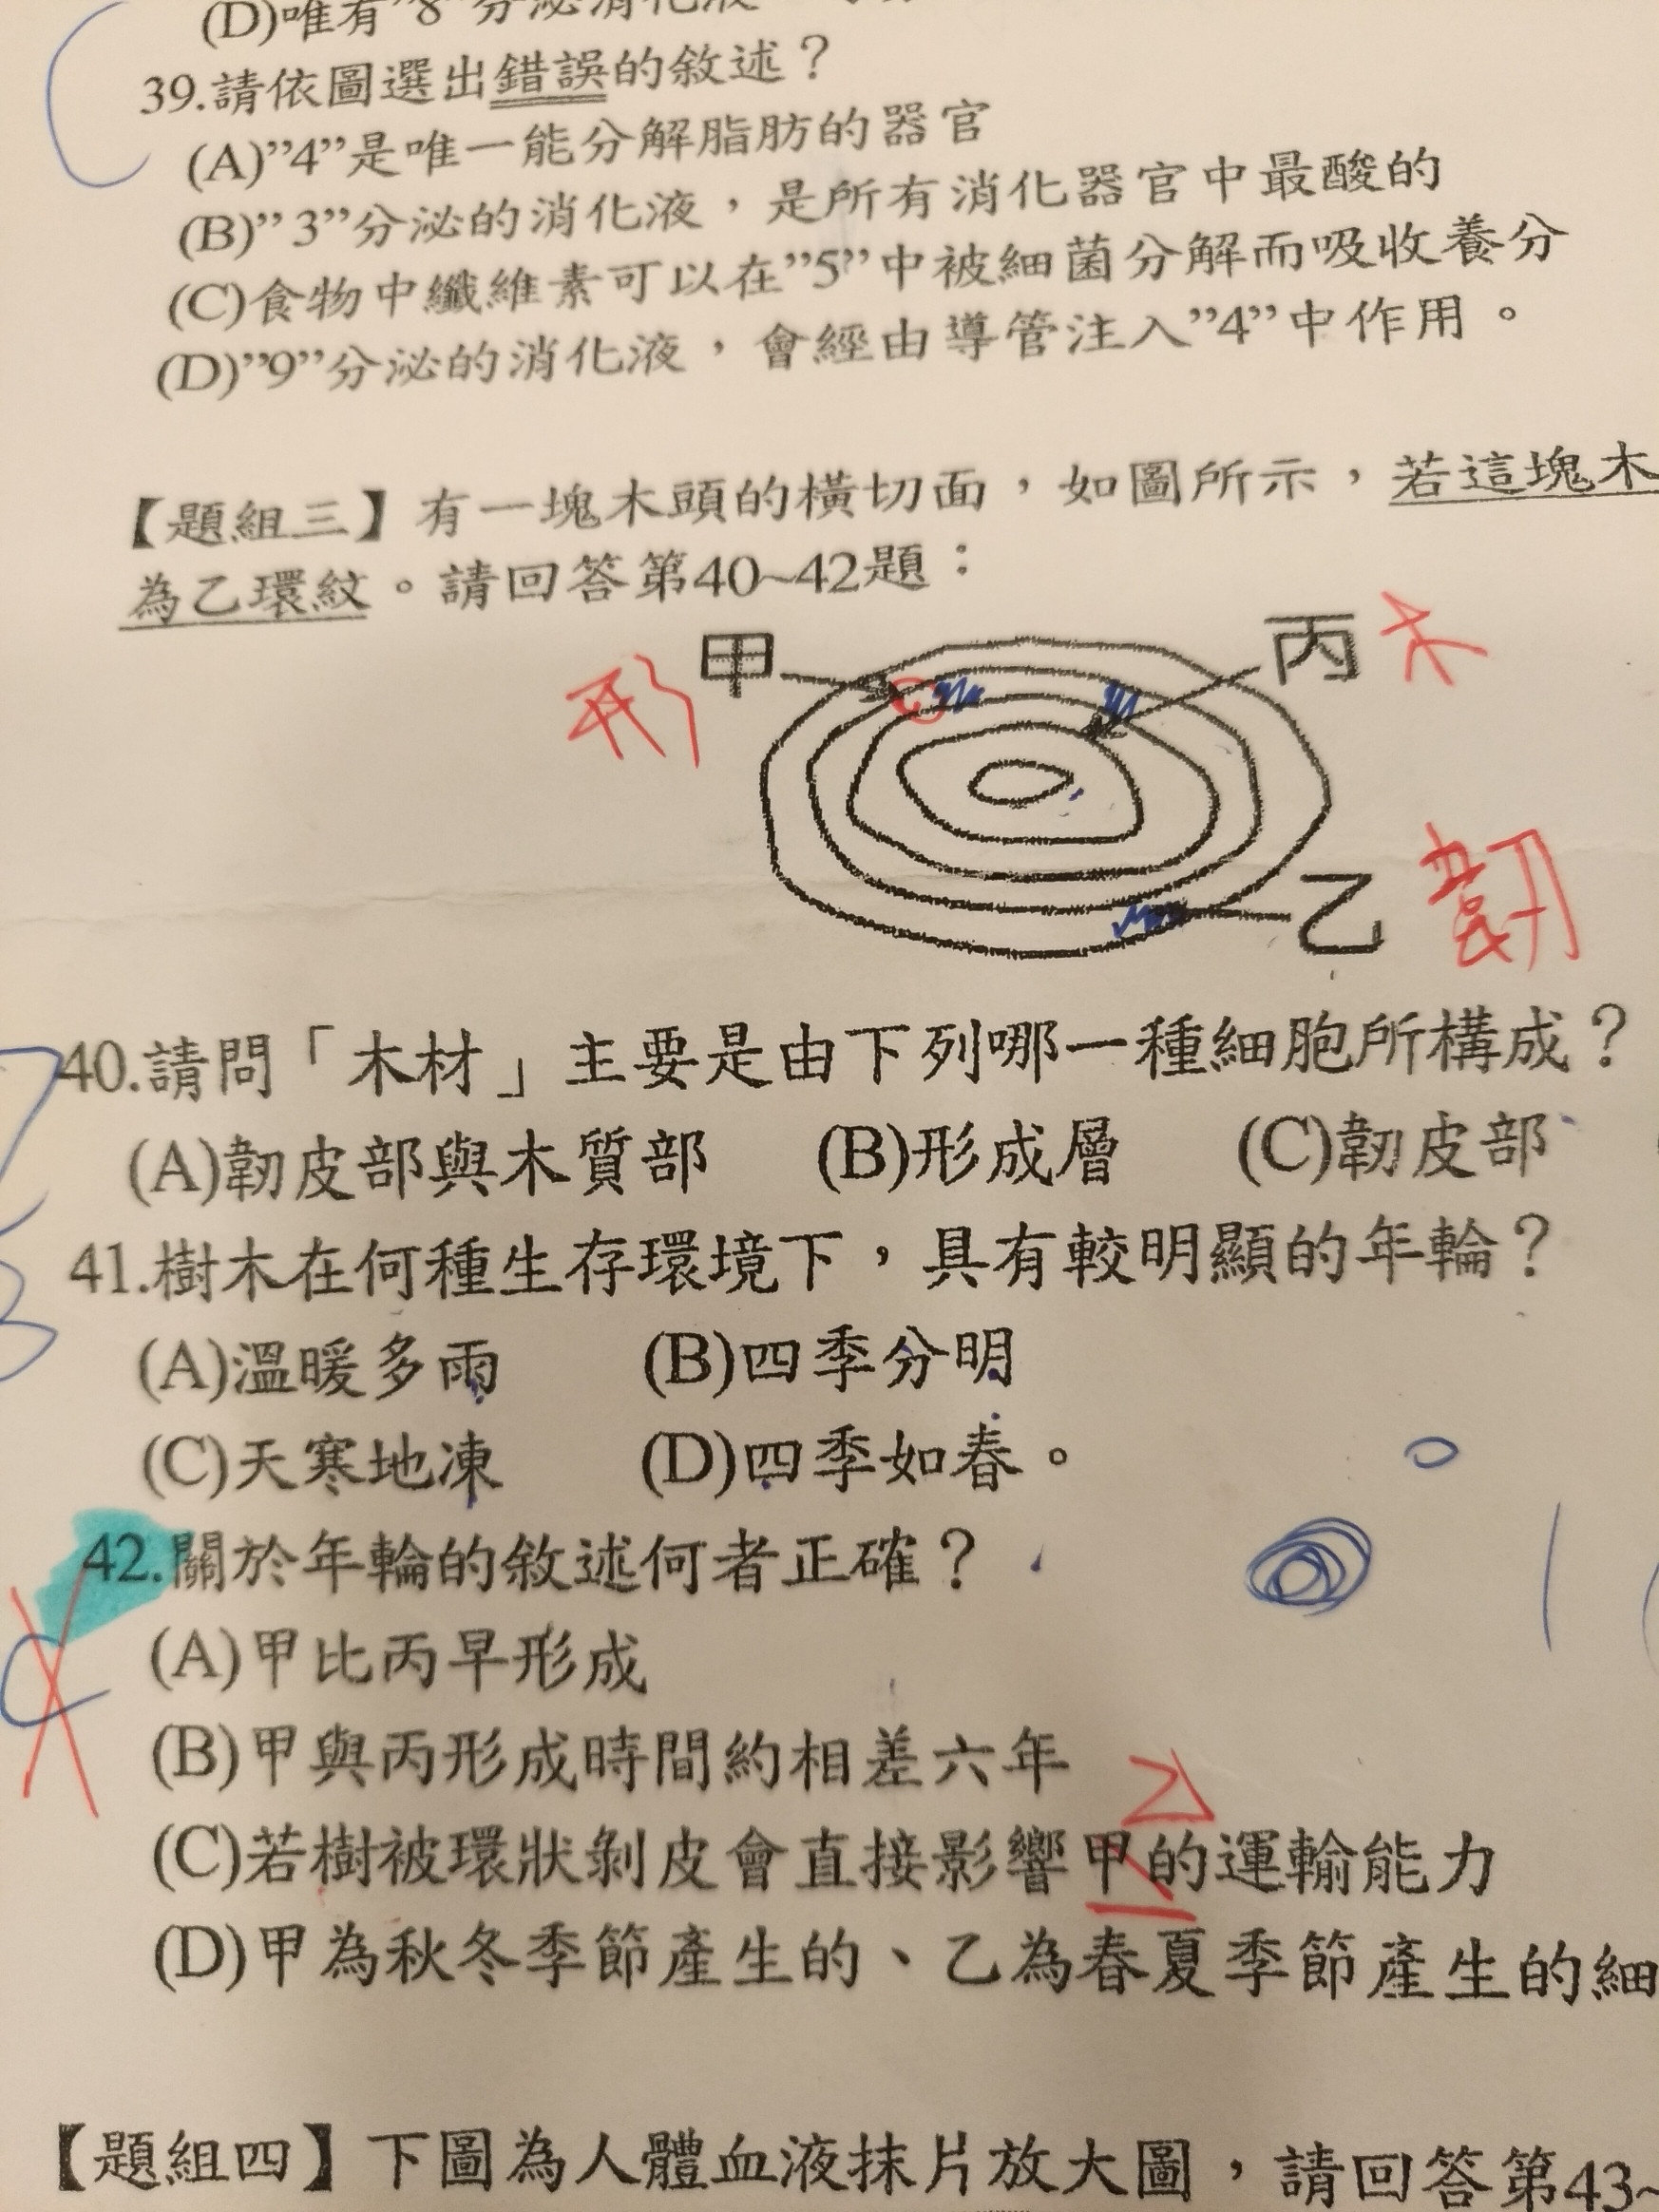 (D)唯有"8"分泌消化液
39.請依圖選出錯誤的敘述？
(A)"4"是唯一能分解脂肪的器官
(B)"3"分泌的消化液，是所有消化器官中最酸的
(C)食物中纖維素可以在"5"中被細菌分解而吸收養分
(D)"9"分泌的消化液，會經由導管注入"4"中作用。
【題組三】有一塊木頭的橫切面，如圖所示，若這塊木
為乙環紋。請回答第40~42題：
形 甲 丙 木
乙 韌
40.請問「木材」主要是由下列哪一種細胞所構成？
(A)韌皮部與木質部 (B)形成層 (C)韌皮部
41.樹木在何種生存環境下，具有較明顯的年輪？
(A)溫暖多雨 (B)四季分明
(C)天寒地凍 (D)四季如春。
42.關於年輪的敘述何者正確？
(A)甲比丙早形成
(B)甲與丙形成時間約相差六年
乙
(C)若樹被環狀剝皮會直接影響甲的運輸能力
(D)甲為秋冬季節產生的、乙為春夏季節產生的細
【題組四】下圖為人體血液抹片放大圖，請回答第43~